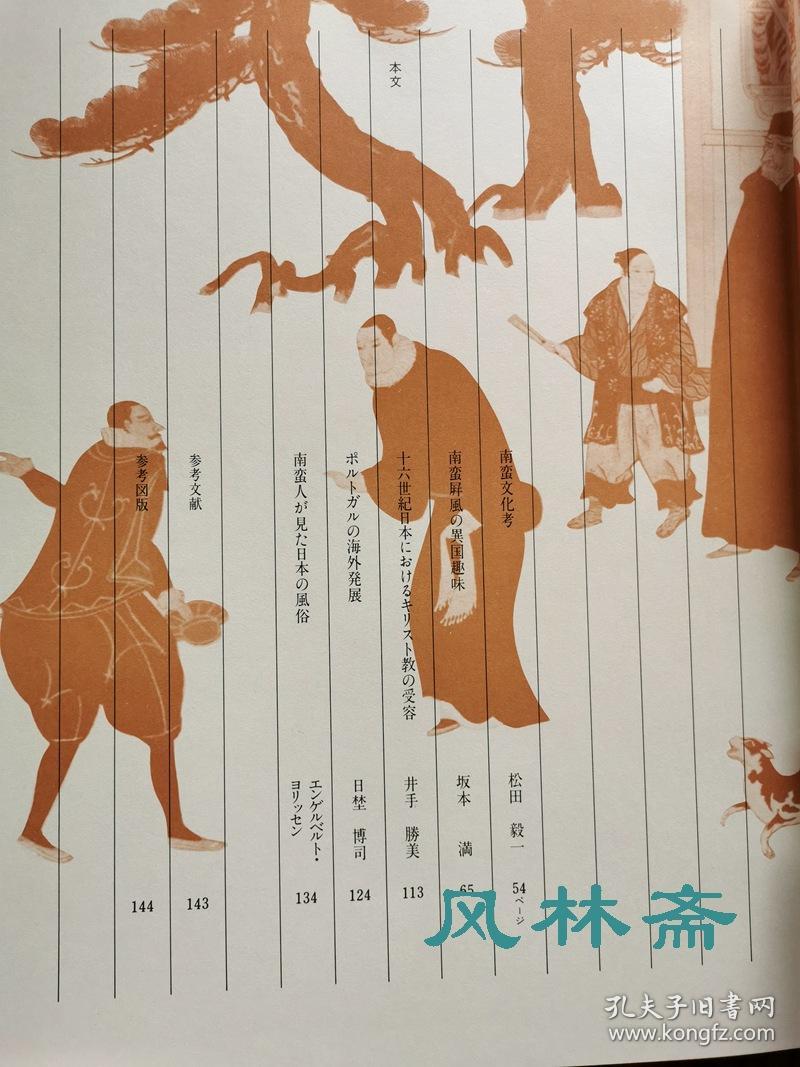 本文
南蛮文化考
松田 毅一
54ページ
南蛮屛風の異国趣味
坂本 満
65
十六世紀日本におけるキリスト教の受容
井手 勝美
113
ポルトガルの海外発展
日埜 博司
124
南蛮人が見た日本の風俗
エンゲルベルト・
ヨリッセン
134
参考文献
143
参考図版
144
风林斋
孔夫子旧書网
www.kongfz.com